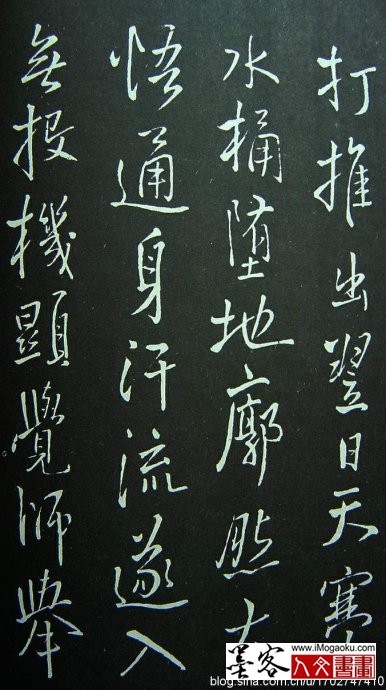 打推出翌日天寒
水桶堕地廓然大
悟通身汗流遂入
無投機顕覺師舉
墨客
www.iMogaoku.com
人文書畫